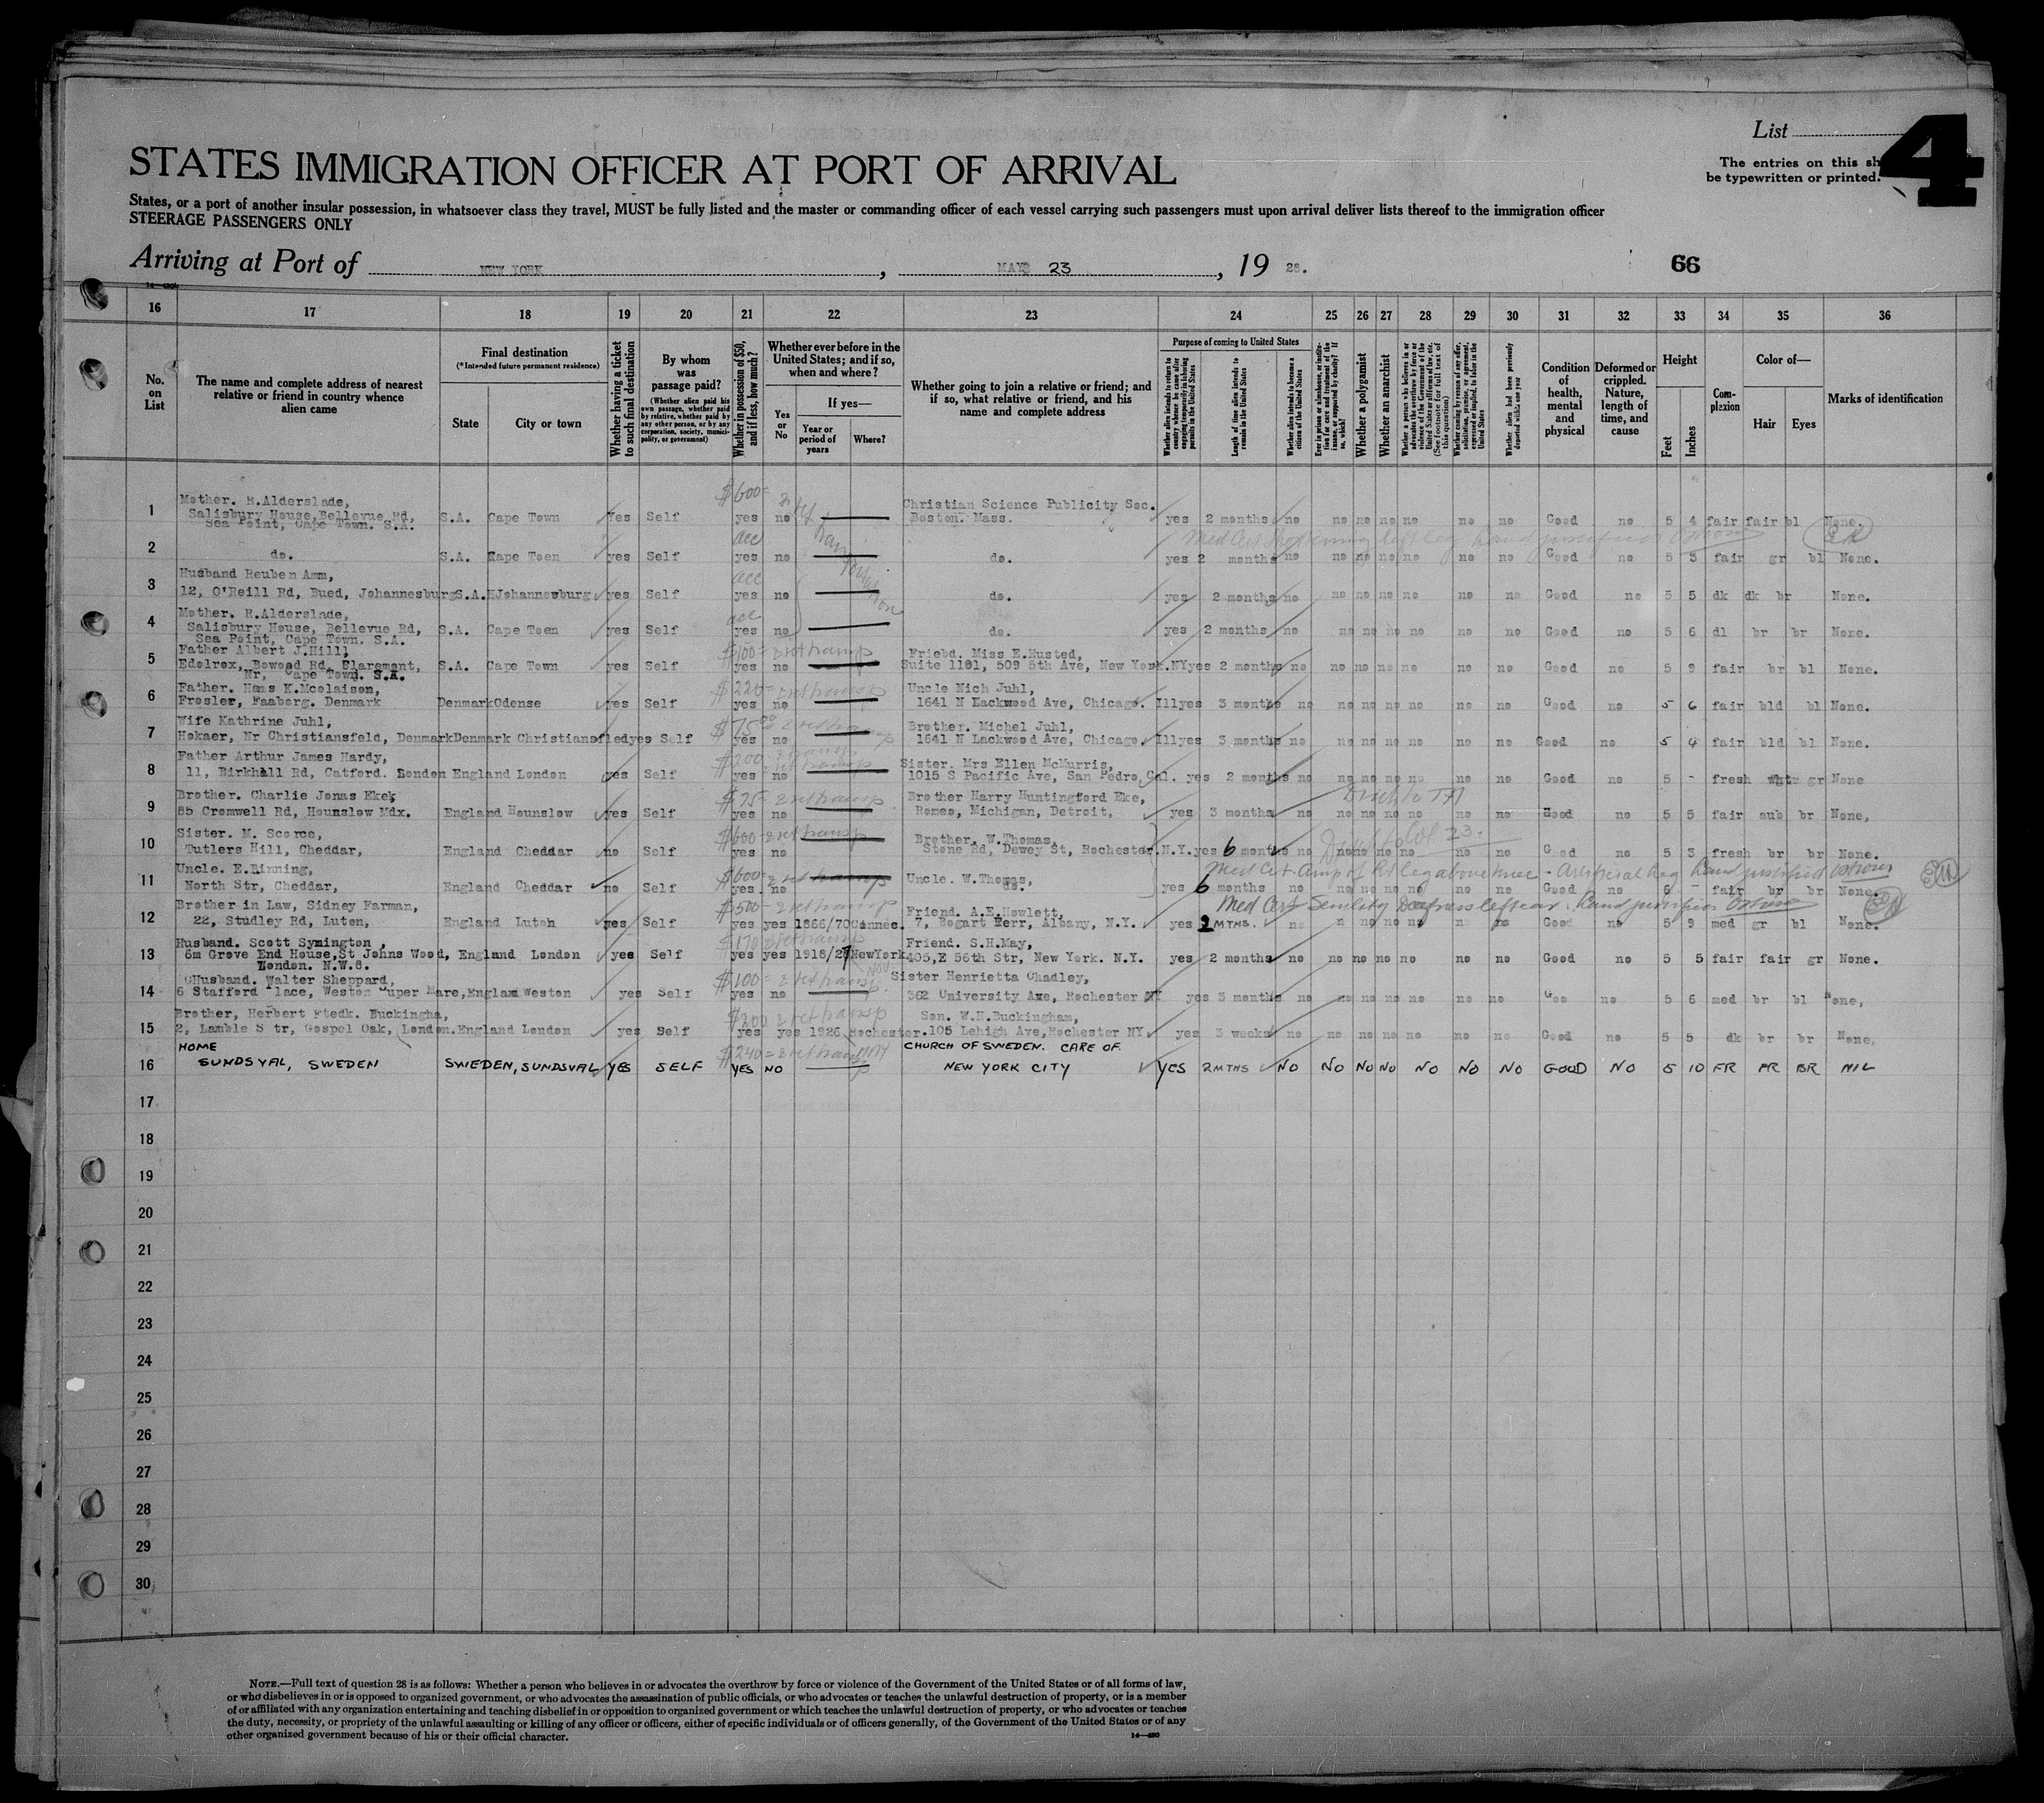 List
4
The entries on this sh
be typewritten or printed.
STATES IMMIGRATION OFFICER AT PORT OF ARRIVAL
States, or a port of another insular possession, in whatsoever class they travel, MUST be fully listed and the master or commanding officer of each vessel carrying such passengers must upon arrival deliver lists thereof to the immigration officer
STEERAGE PASSENGERS ONLY
Arriving at Port of NEW YORK, MAY 23, 19 28.
66
16 17 18 19 20 21 22 23 24 25 26 27 28 29 30 31 32 33 34 35 36
No. on List
The name and complete address of nearest relative or friend in country whence alien came
Final destination
(*Intended future permanent residence)
State
City or town
Whether having a ticket to such final destination
By whom was passage paid?
(Whether alien paid his own passage, whether paid by relative, whether paid by any other person, or by any corporation, society, municipality, or government)
Whether in possession of $50, and if less, how much?
Whether ever before in the United States; and if so, when and where?
Yes or No
If yes—
Year or period of years
Where?
Whether going to join a relative or friend; and if so, what relative or friend, and his name and complete address
Purpose of coming to United States
Whether alien intends to return to country whence he came after engaging temporarily in laboring pursuits in the United States
Length of time alien intends to remain in the United States
Whether alien intends to become a citizen of the United States
Ever in prison or almshouse, or institution for care and treatment of the insane, or supported by charity? If so, which?
Whether a polygamist
Whether an anarchist
Whether a person who believes in or advocates the overthrow by force or violence of the Government of the United States or all forms of law, etc. (See footnote for full text of this question)
Whether coming by reason of any offer, solicitation, promise, or agreement, expressed or implied, to labor in the United States
Whether alien had been previously deported within one year
Condition of health, mental and physical
Deformed or crippled. Nature, length of time, and cause
Height
Feet
Inches
Complexion
Color of—
Hair
Eyes
Marks of identification
Mother. R.Alderslade, $600- Christian Science Publicity Soc.
1 Salisbury House,Bellevue Rd, S.A. Cape Town Yes Self yes no Boston. Mass. yes 2 months no no no no no no no Good no 5 4 fair fair bl None.
Sea Point, Cape Town. S.A.
2 do. S.A. Cape Toen yes Self yes no do. yes 2 months no no no no no no no Good no 5 5 fair gr bl None.
Husband Reuben Amm,
3 12, O'Reill Rd, Bued, Johannesburg S.A. Johannesburg yes Self yes no do. yes 2 months no no no no no no no Good no 5 5 dk dk br None.
Mother. R.Alderslade,
4 Salisbury House, Bellevue Rd, S.A. Cape Toen yes Self yes no do. yes 2 months no no no no no no no Good no 5 6 dl br br None.
Sea Point, Cape Town. S.A.
Father Albert J.Hill, $100- Friend. Miss E.Husted,
5 Edelrox, Bowood Rd, Claremont, S.A. Cape Town yes Self yes no Suite 1101, 509 5th Ave, New York.NY yes 2 months no no no no no no no Good no 5 9 fair br bl None.
Nr, Cape Town. S.A.
Father. Hans K.Mcolaison, $220- Uncle Nich Juhl,
6 Frosler, Faaborg. Denmark Denmark Odense yes Self yes no 1641 N Lackwood Ave, Chicago. Ill yes 3 months no no no no no no no Good no 5 6 fair bld bl None.
Wife Kathrine Juhl, $75 Brother. Michel Juhl,
7 Hokaer, Nr Christiansfeld, Denmark Denmark Christiansfled yes Self yes no 1641 N Lackwood Ave, Chicago. Ill yes 3 months no no no no no no no Good no 5 4 fair bld bl None.
Father Arthur James Hardy, $200- Sister. Mrs Ellen McMurris,
8 11, Birkhall Rd, Catford. London England London yes Self yes no 1015 S Pacific Ave, San Pedro, Cal. yes 2 months no no no no no no no Good no 5 - fresh gr None
Brother. Charlie Jonas Eke, $75- Brother Harry Huntingford Eke,
9 85 Cromwell Rd, Hounslow Mdx. England Hounslow yes Self yes no Romeo, Michigan, Detroit, yes 3 months no no no no no no no Good no 5 5 fair aub br None,
Sister. M. Scorce, $600- Brother, W.Thomas,
10 Tutlers Hill, Cheddar, England Cheddar no Self yes no Stone Rd, Dewey St, Rochester.N.Y. yes 6 months no no no no no no no Good no 5 3 fresh br br None.
Uncle. E.Binning, $600- Med Cert Amp of Rt leg above knee - Artificial leg
11 North Str, Cheddar, England Cheddar no Self yes. no Uncle. W.Thomas, do. yes 6 months no no no no no no no Good no 6 - fair br br None.
Brother in Law, Sidney Farman, $500- Friend. A.E.Howlett, Med Cert Senility Deafness left ear
12 22, Studley Rd, Luton, England Lutoh yes Self yes yes 1866/70 7, Bogart Terr, Albany, N.Y. yes 2 MTHS. no no no no no no Good no 5 9 med gr bl None.
Husband. Scott Symington, $170 Friend. S.H.May,
13 6m Grove End House,St Johns Wood, England London yes Self yes yes 1918/27 NewYork 405,E 56th Str, New York. N.Y. yes 2 months no no no no no no no Good no 5 5 fair fair gr None.
London. N.W.8.
Husband. Walter Sheppard, $100- Sister Henrietta Chadley,
14 6 Stafford Place, Weston Super Mare,England Weston yes Self yes no 362 University Axe, Rochester NY yes 3 months no no no no no no no Goo no 5 6 med br bl None,
Brother, Herbert Ftedk. Buckingha, $200 Son. W.H.Buckingham,
15 2, Lamble S tr, Gospel Oak, London. England London yes Self yes yes 1926 Rochester. 105 Lehigh Ave,Rochester NY. yes 3 weeks no no no no no no no Good no 5 5 dk br br None,
HOME $240- CHURCH OF SWEDEN. CARE OF.
16 SUNDSVAL, SWEDEN SWEDEN, SUNDSVAL YES SELF YES NO NEW YORK CITY YES 2MTHS NO NO NO NO NO NO NO GOOD NO 5 10 FR FR BR NIL
17
18
19
20
21
22
23
24
25
26
27
28
29
30
NOTE.—Full text of question 28 is as follows: Whether a person who believes in or advocates the overthrow by force or violence of the Government of the United States or of all forms of law,
or who disbelieves in or is opposed to organized government, or who advocates the assassination of public officials, or who advocates or teaches the unlawful destruction of property, or is a member
of or affiliated with any organization entertaining and teaching disbelief in or opposition to organized government or which teaches the unlawful destruction of property, or who advocates or teaches
the duty, necessity, or propriety of the unlawful assaulting or killing of any officer or officers, either of specific individuals or of officers generally, of the Government of the United States or of any
other organized government because of his or their official character.
14—430